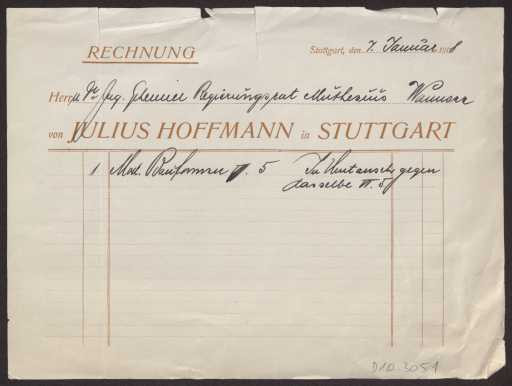 RECHNUNG
Stuttgart, den 7. Januar 19
Herrn Dr. Ing. Geheimer Regierungsrat Muthesius Wannsee
von JULIUS HOFFMANN in STUTTGART
1 Mod. Bauformen VI. 5 Im Umtausch gegen
dasselbe VI. 5
D10-3051